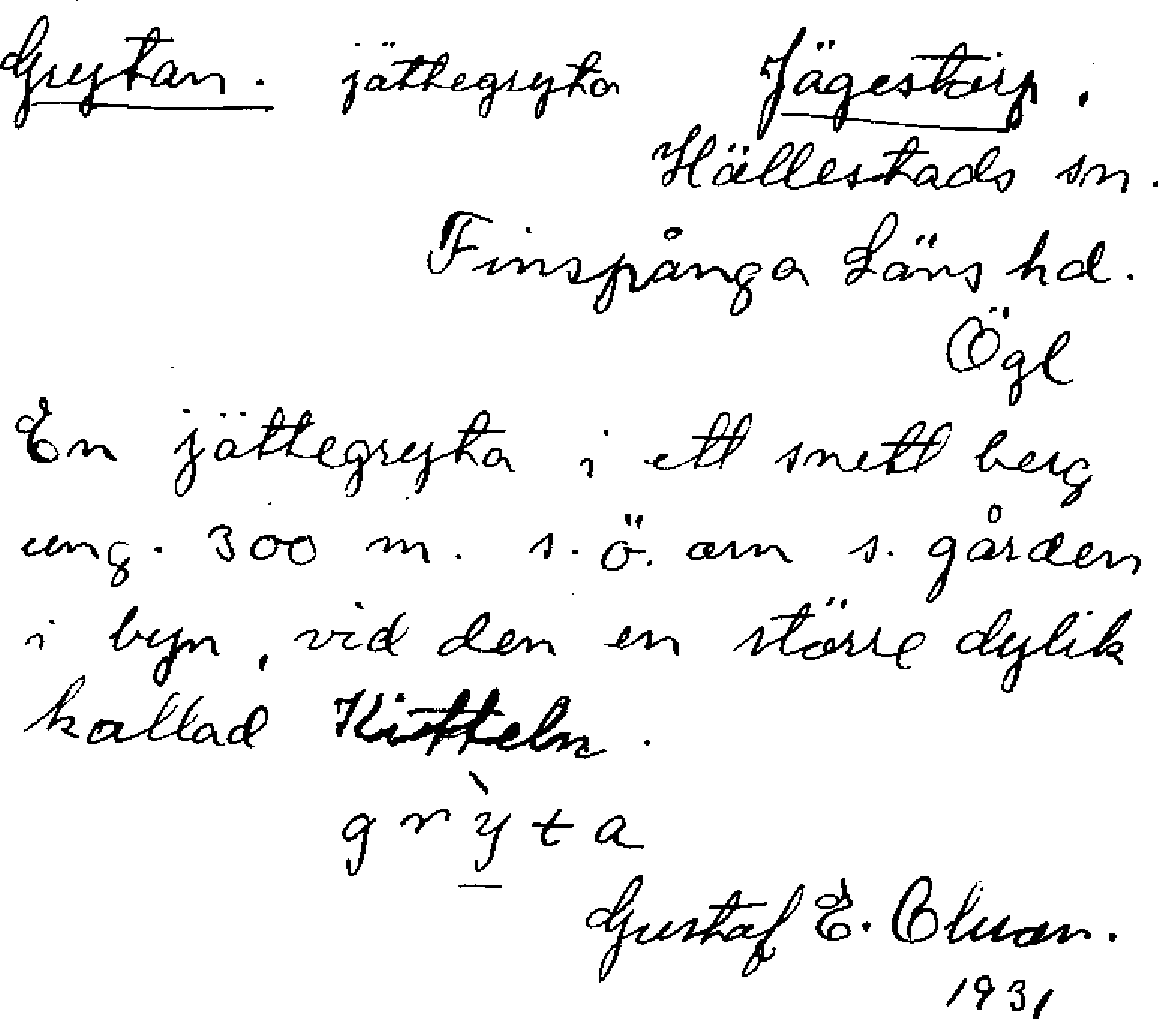 Grytan. jättegryta Jägestorp.
Hällestads sn.
Finspånga Läns hd.
Ögl
En jättegryta i ett snett berg
ung. 300 m. s.ö. om s. gården
i byn, vid den en större dylik
kallad Kitteln.
grỳta
Gustaf E. Olsson.
1931